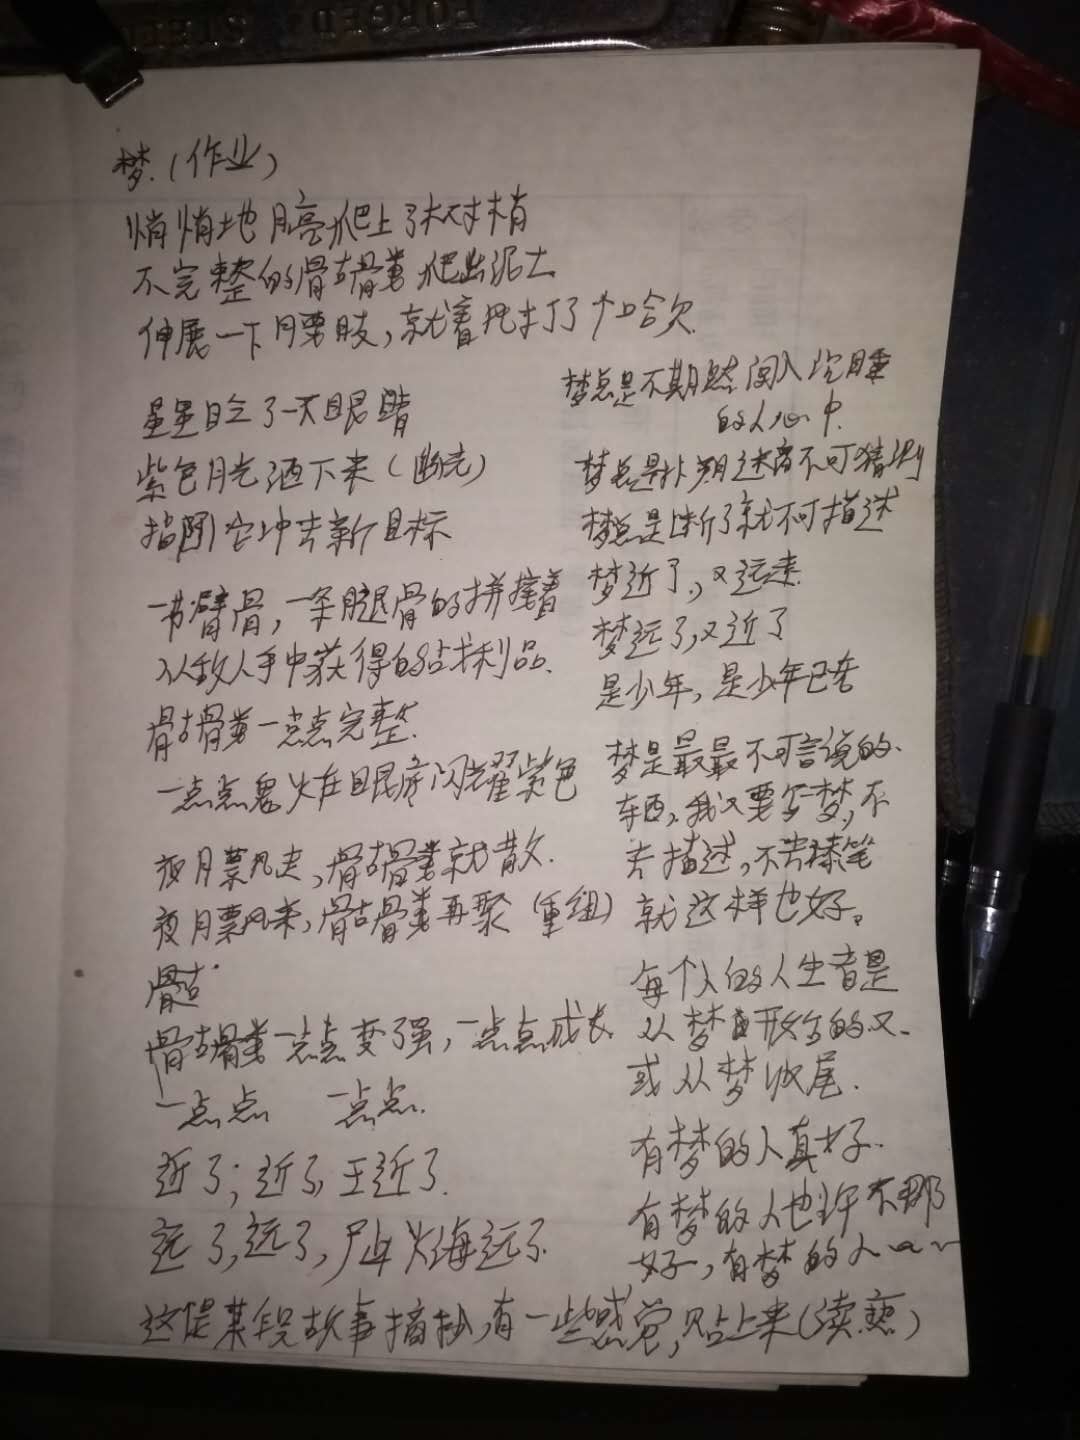 FORGED STEE
梦.(作业)
悄悄地月亮爬上了树梢
不完整的骨骷髅爬出泥土
伸展一下腰肢,就着月打了个哈欠.
星星眨了一天眼睛
紫色月光洒下来(幽光)
指引它冲去新目标
一节臂骨,一条腿骨的拼接着
从敌人手中获得的战利品.
骷髅一点点完整.
一点点鬼火在眼底闪耀紫色
夜飘风走,骷髅就散.
夜飘风来,骷髅再聚(重组)
骷
骷髅一点点变强,一点点成长
一点点 一点点.
近了;近了,王近了.
远了,远了,尸山火海远了.
梦总是不期然闯入沉睡
的人心中.
梦总是扑朔迷离不可猜测
梦总是断了就不可描述
梦近了,又远来.
梦远了,又近了
是少年,是少年已老
梦是最最不可言说的.
东西,我又要写梦,不
去描述,不去琢笔
就这样也好。
每个人的人生音是
从梦开始的又.
或从梦收尾.
有梦的人真好.
有梦的人也许不那
好,有梦的人
这是某段故事摘抄,有一些感觉,贴上来(读熟)